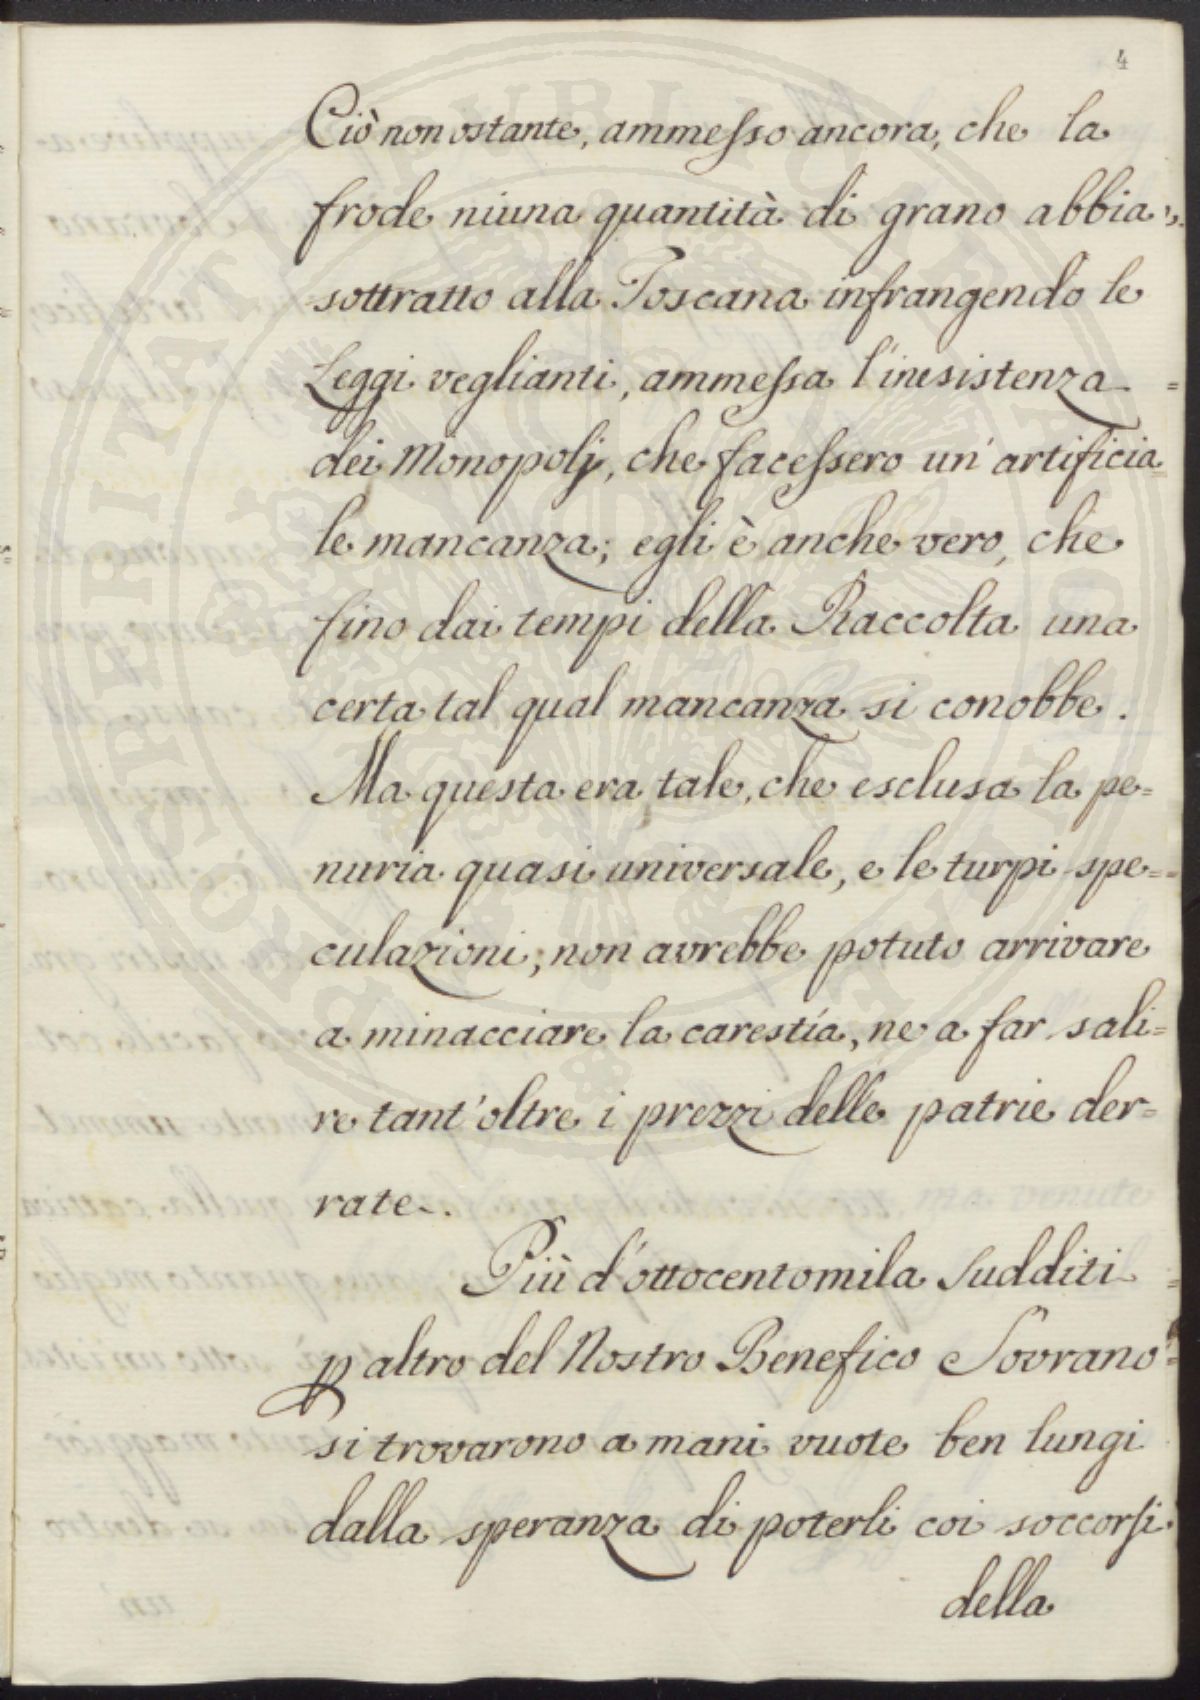 4
Ciò non ostante, ammesso ancora, che la
frode niuna quantità di grano abbia
sottratto alla Toscana infrangendo le
Leggi veglianti, ammessa l'inesistenza =
dei Monopolj, che facessero un'artificia=
le mancanza; egli è anche vero, che
fino dai tempi della Raccolta una
certa tal qual mancanza si conobbe.
Ma questa era tale, che esclusa la pe=
nuria quasi universale, e le turpi spe=
culazioni; non avrebbe potuto arrivare
a minacciare la carestía, ne a far sali=
re tant'oltre i prezzi delle patrie der=
rate.
Più d'ottocentomila Sudditi =
p altro del Nostro Benefico Sovrano =
si trovarono a mani vuote ben lungi
dalla speranza di poterli coi soccorsi
della
PROSPERITATI PUBLICAE